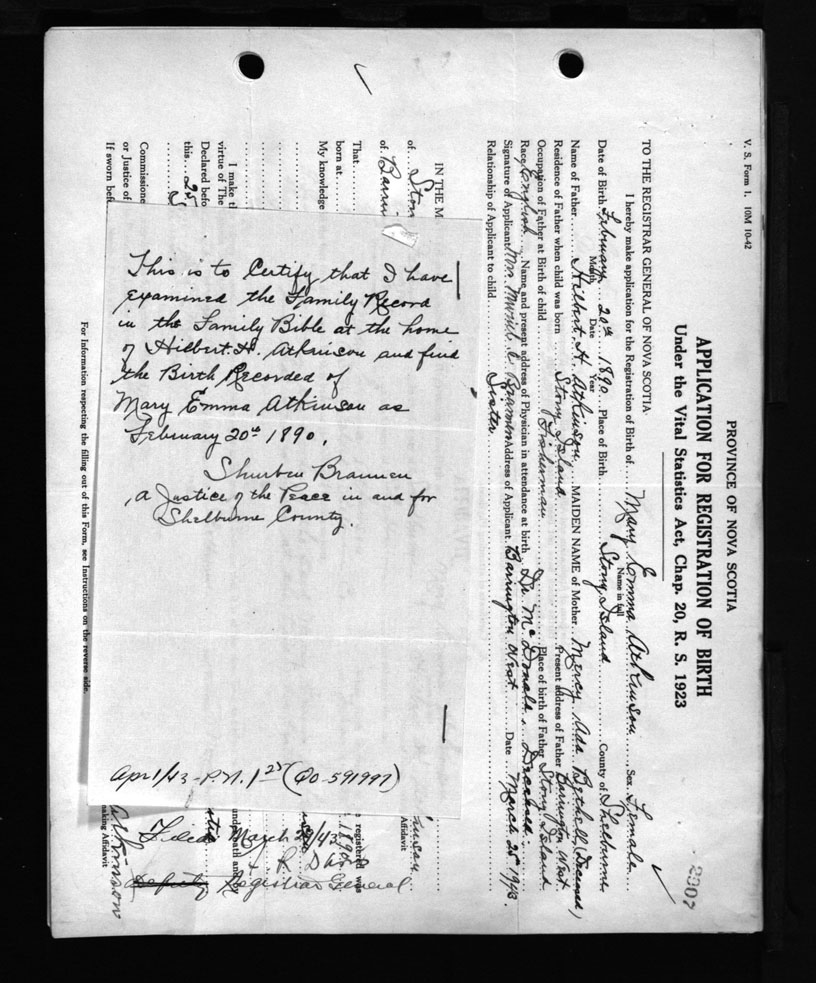 V. S. Form 1. 10M 10-42
2907
PROVINCE OF NOVA SCOTIA
APPLICATION FOR REGISTRATION OF BIRTH
Under the Vital Statistics Act, Chap. 20, R. S. 1923
TO THE REGISTRAR GENERAL OF NOVA SCOTIA
I hereby make application for the Registration of Birth of Mary Emma Atkinson Sex Female
Name in full
Date of Birth February 20th 1890 Place of Birth Stony Island County of Shelburne
Month Date Year
Name of Father Hilbert H. Atkinson MAIDEN NAME of Mother Mercy Ada (Deceased)
Residence of Father when child was born Stony Island Present address of Father Barrington West
Occupation of Father at Birth of child Fisherman Place of birth of Father Stony Island
Race English Name and present address of Physician in attendance at birth Dr. McDonald, Deceased.
Signature of Applicant Mrs. Address of Applicant Barrington West Date March 25th 1943.
Relationship of Applicant to child Sister
IN THE M
of Ston
of Barrin
That
born at
My knowledge
I make th
virtue of The
Declared befo
this 25
Commissione
or Justice of
If sworn bef
For Information respecting the filling out of this Form, see Instructions on the reverse side.
This is to Certify that I have
examined the Family Record
in the Family Bible at the home
of Hilbert H. Atkinson and find
the Birth Recorded of
Mary Emma Atkinson as
February 20th 1890.
Shurben Brannen
a Justice of the Peace in and for
Shelburne County.
Apr 1/43 - P.N. 1 25 (PO-591997)
Affidavit
registered was
1890
under oath and by
Filed March /43
Deputy Registrar General
making Affidavit